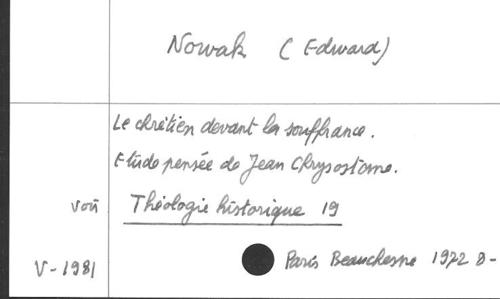 Nowak (Edward)
Le chrétien devant la souffrance.
Etude pensée de Jean Chrysostome.
voir Théologie historique 19
V-1981 Paris Beauchesne 1972 8-